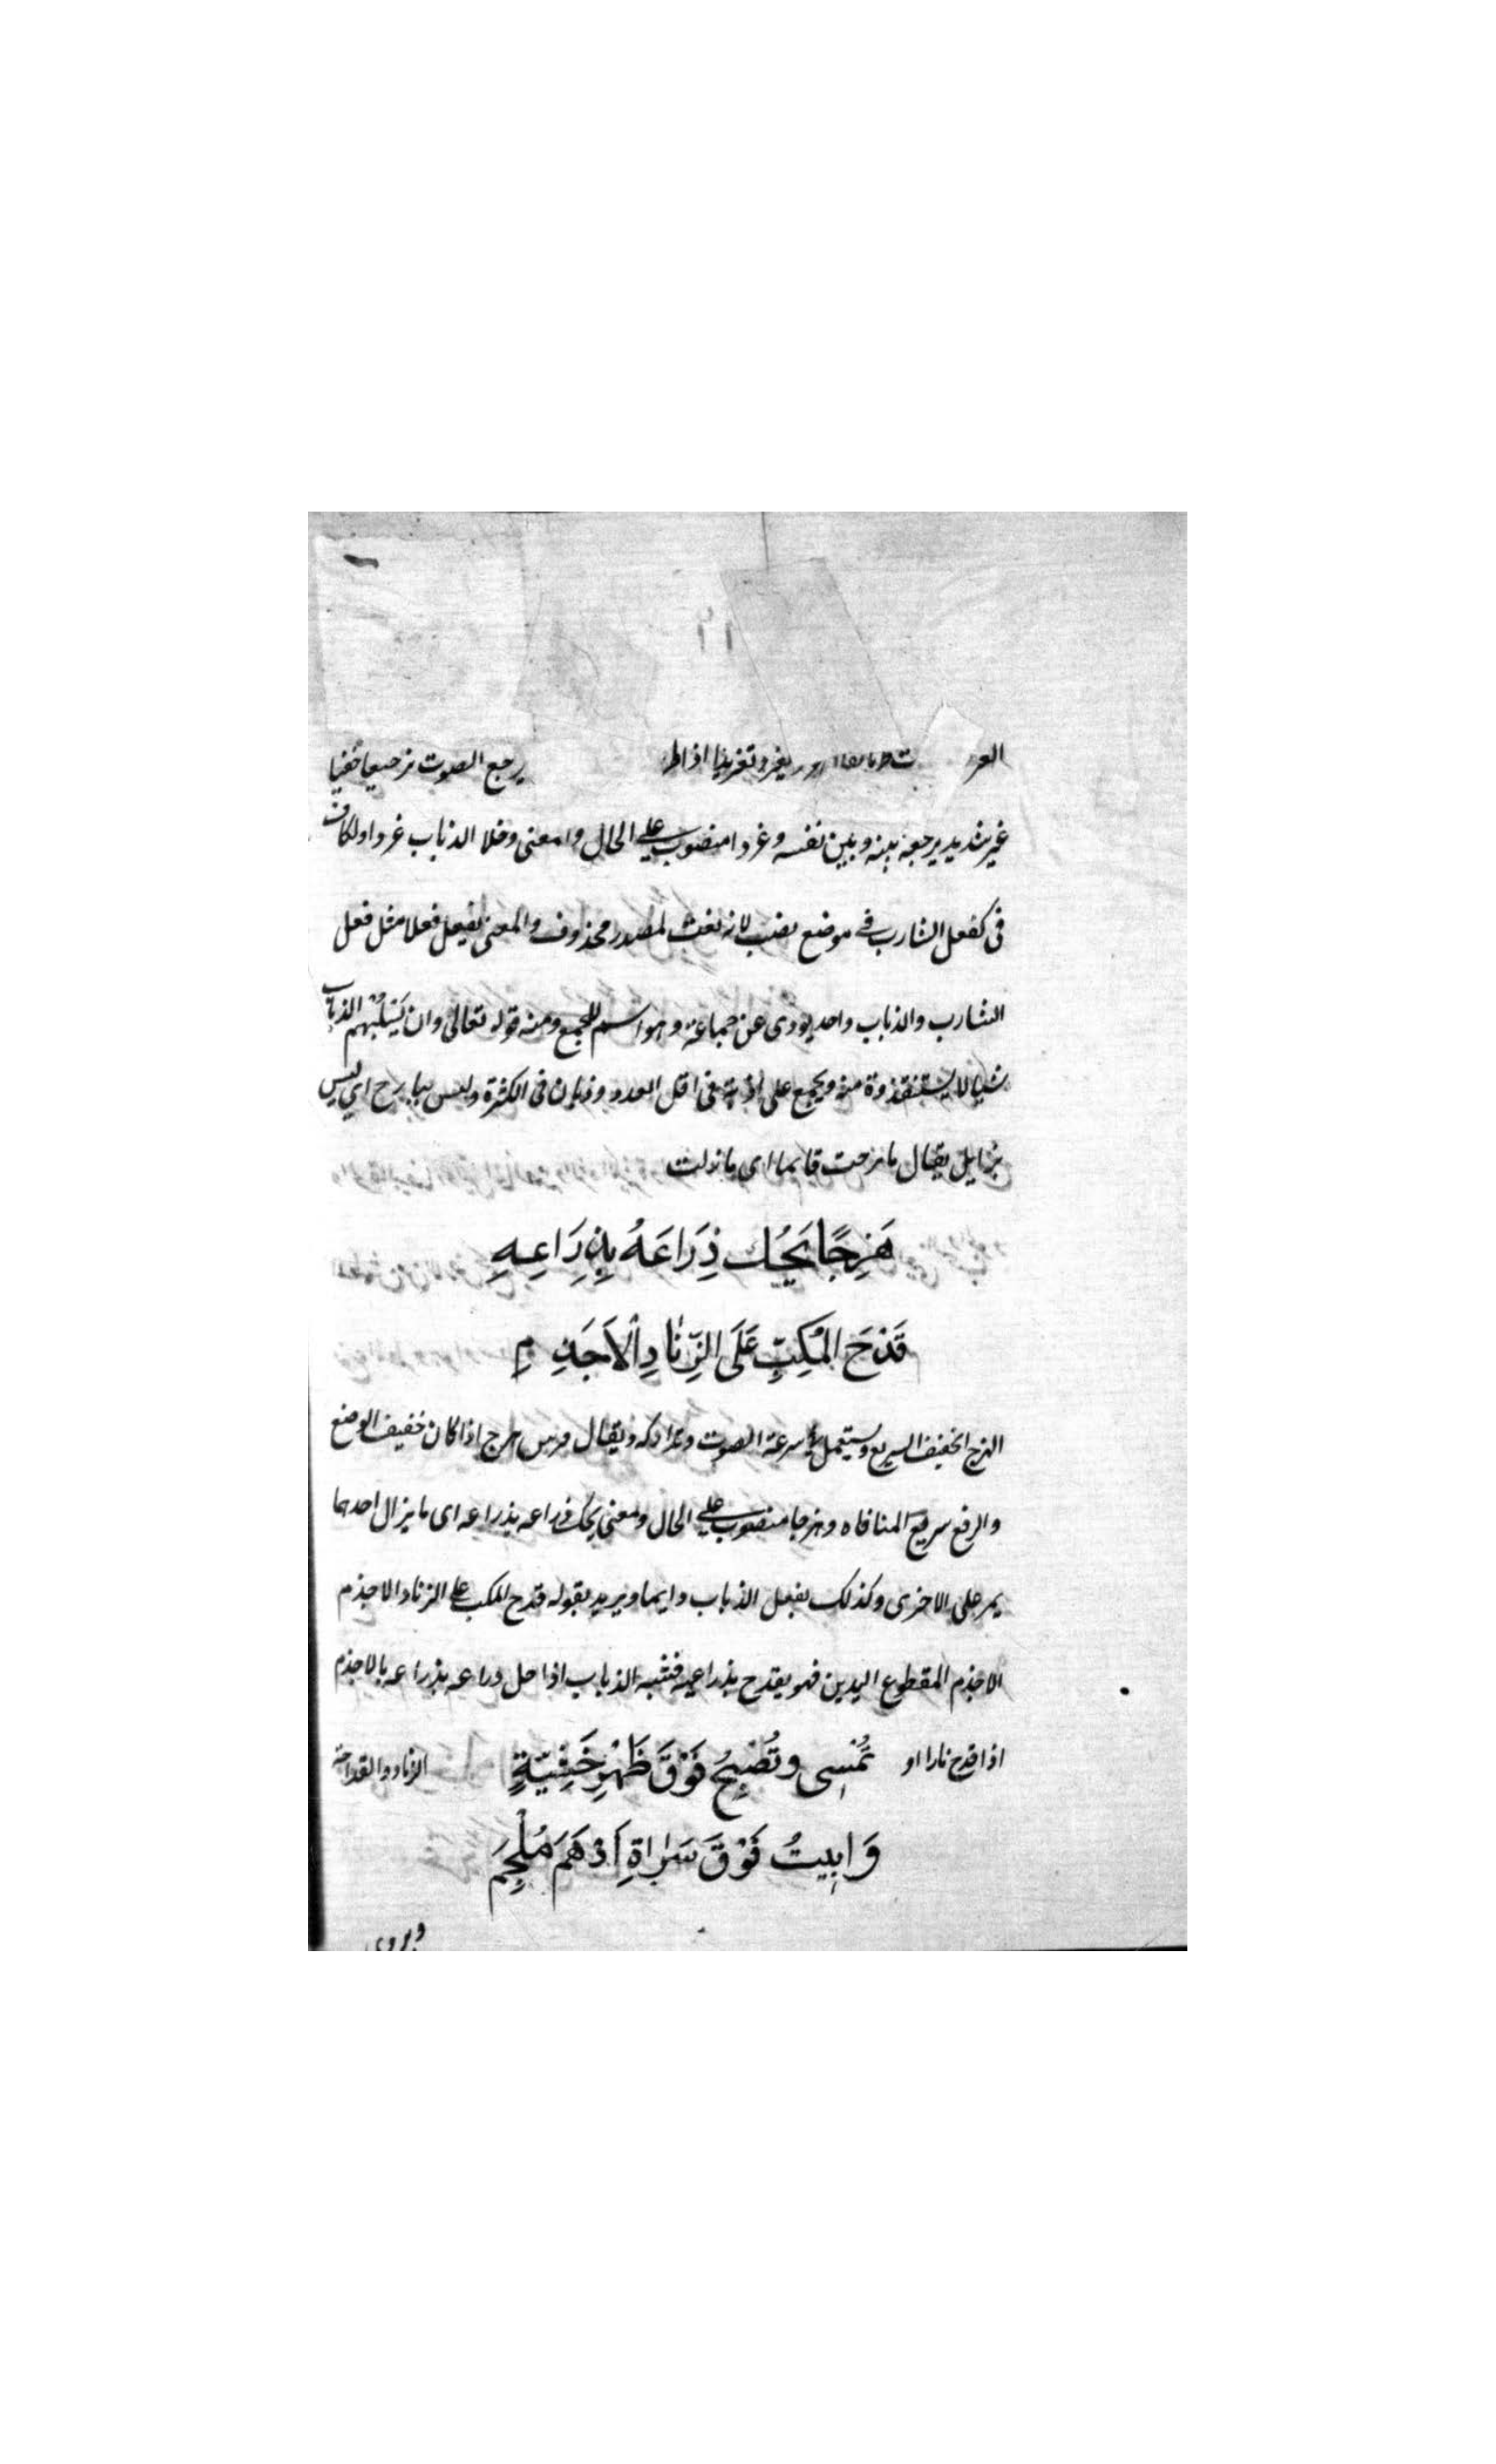 يغرد تغريدا اذا يرجع الصوت ترجيعا خفيا
غير شديد يرجعه بينه وبين نفسه وغردا منصوب على الحال والمعنى وخلا الذباب غردا والكاف
فى كفعل الشارب فى موضع نصب لانه نعت لمصدر محذوف والمعنى يفعل فعلا مثل فعل
الشارب والذباب واحد يودى عن جماعة وهو اسم للجمع ومنه قوله تعالى وان يَسْلُبْهُم الذباب
شيا لا يستنقذوه منه ويجمع على اذبة فى اقل العدد وذبان فى الكثرة وليس ببارح اى ليس
بزايل يقال ما برحت قايما اى ما زلت
هَزِجًا يَحُكُ ذِرَاعَهُ بِذِرَاعِهِ
قَدْحَ المُكِبِّ عَلَى الزِّنَادِ الْاَجْذَمِ
الهزج الخفيف السريع ويستعمل فى سرعة الصوت وتداركه ويقال فرس هزج اذا كان خفيف الوضع
والرفع سريع المناقاه وهزجا منصوب على الحال ومعنى يحك ذراعه بذراعه اى ما يزال احدهما
يمر على الاخرى وكذلك يفعل الذباب دايما ويريد بقوله قدح المكب على الزناد الاجذم
الاجذم المقطوع اليدين فهو يقدح بذراعيه فشبه الذباب اذا حل ذراعه بذراعه بالاجذم
اذا قدح نارا او الزناد والقداحة
تُمْسِى وتُصْبِحُ فَوْقَ ظَهْرِ حَشِيَّةٍ
وَابِيتُ فَوْقَ سَرَاةِ اَدْهَمَ مُلْجِمَ
ويروى